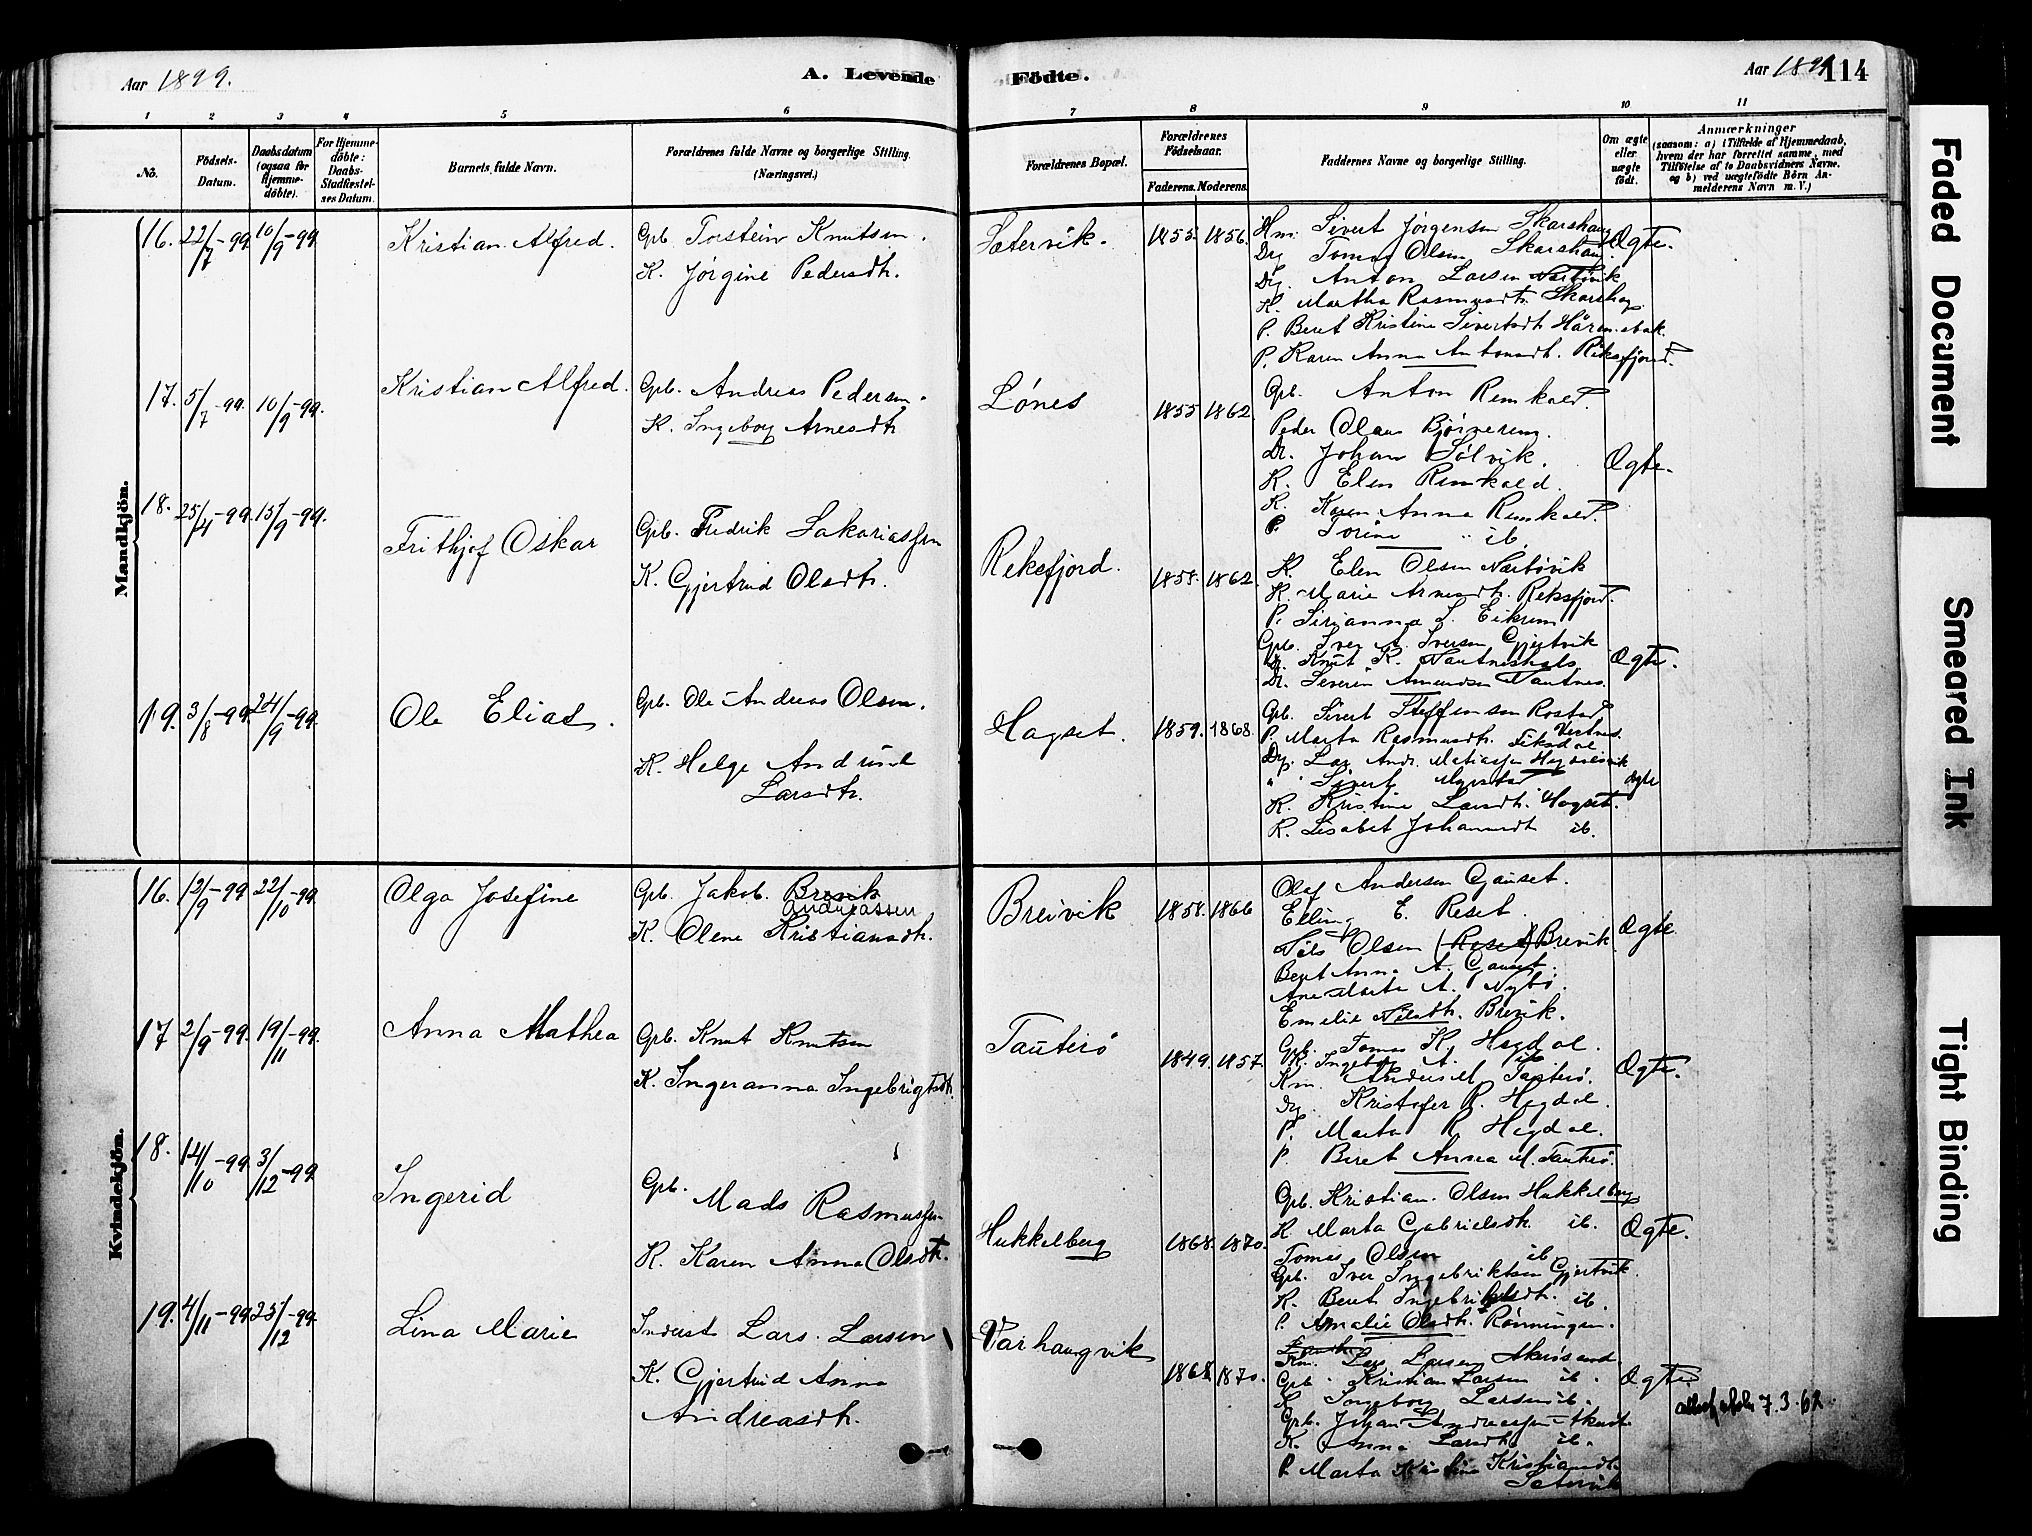 Aar 1899.
A. Levende
Födte.
Aar 1899
114
1 2 3 4 5 6 7 8 9 10 11
No.
Födsels-Datum.
Daabsdatum (ogsaa for Hjemmedöbte).
For Hjemmedöbte: Daabs-Stadfæstelses Datum.
Barnets fulde Navn.
Forældrenes fulde Navne og borgerlige Stilling. (Næringsvei.)
Forældrenes Bopæl.
Forældrenes Födselsaar.
Faderens. Moderens.
Faddernes Navne og borgerlige Stilling.
Om ægte eller uægte födt.
Anmærkninger
(saasom: a) i Tilfælde af Hjemmedaab, hvem der har forrettet samme, med Tilföielse af to Daabsvidners Navne, og b) ved uægtefödte Börn Anmelderens Navn m. V.)
Mandkjön.
16. 22/7-99 10/9-99 Kristian Alfred. Gpb. Torstein Knutsen.
K. Jørgine Pedersdtr.
Sætervik. 1855. 1856.
Hm. Sivert Jørgensen Skarshaug
Drg Tomas Olsen Skarshaug
Drg. Anton Larsen Nærøvik
K. Martha Rasmusdtr. Skarshag
P. Beret Kristine Sivertsdt.
P. Karen Anna Antonsdt. Reksfjord.
Ægte.
17. 5/7-99. 10/9-99. Kristian Alfred. Gpb. Andreas Pedersen.
K. Ingeborg Arnesdtr
Lønes 1855 1862.
Gpb. Anton Remkald.
Peder Olaus Bjørnerem.
Dr. Johan Sølvik.
K. Elen Remkald.
K. Karen Anna Remkald.
P. Torine " ib.
Ægte.
18. 25/4-99 15/9-99. Frithjof Oskar Gpb. Fredrik Sakariassen
K. Gjertrud Olsdtr.
Reksfjord. 1858. 1862.
K. Elen Olsen Nærøvik
K. Marie Arnesdtr. Reksfjord.
P. Sirianna L. Eikrem
Gpb. Iver A. Iversen Gjertvik
Dr. Knut K. Nautneshals
Dr. Severin Amundsen Nautnes.
Ægte.
19. 3/8-99. 24/9-99. Ole Elias. Gpb. Ole Andreas Olsen.
K. Helge Andrine
Larsdtr.
Hagset. 1859. 1868.
Gpb. Sivert Steffensen Rostad
P. Marta Rasmusdtr. Vestnes.
Drg. Lars Andr. Matiassen
" Sivert
K. Kristine Larsdt. Hagset.
K. Lisabet Johannesdt ib.
Ægte
Kvindekjön.
16. 12/9-99 22/10-99. Olga Josefine Gpb. Jakob Brevik
Andreassen
K. Olene Kristiansdtr.
Breivik 1858. 1866
Olaf Andersen Gauset.
Elling E. Reset.
Nils Olsen (Roset) Brevik
Beret Anna A. Gauset.
Ane Marta A. Nybø.
Emelie Nilsdtr. Brevik.
Ægte
17 2/9-99. 19/11-99. Anna Mathea Gpb. Knut Knutsen
K. Ingeranna Ingebrigtsdt.
Tauterø 1849. 1857.
Gpb. Tomas K. Hegdal.
K. Ingeborg A. ib
Km. Anders M. Tauterø.
Drg. Kristofer R. Hegdal.
P. Marta R Hegdal.
P. Beret Anna M. Tauterø.
Ægte.
18. 14/10-99. 3/12-99. Ingerid Gpb.
Mads Rasmussen
K. Karen Anna Olsdtr.
Hukkelberg 1868. 1870.
Gpb. Kristian Olsen Hukkelberg
K Marta Gabrielsdt. ib.
Tomas Olsen ib.
Gpb. Iver Ingebriktsen Gjertvik.
K. Beret Ingebriktsdt. ib.
P. Amalie Olsdt. Rønningen.
Ægte.
19. 4/11-99 25/12-99. Lina Marie Inderst Lars Larsen
K. Gjertrud Anna
Andreasdt.
Varhaugvik 1868. 1870.
Km. Lars Larsen Akrøsand.
Gpb. Kristian Larsen ib.
K Ingeborg Larsen ib.
Gpb. Johan Andreassen
K. Anna Larsdt. ib.
P. Marta Kristine Kristiansdt.
Setervik
Ægte
7.3.62
Faded Document
Smeared Ink
Tight Binding